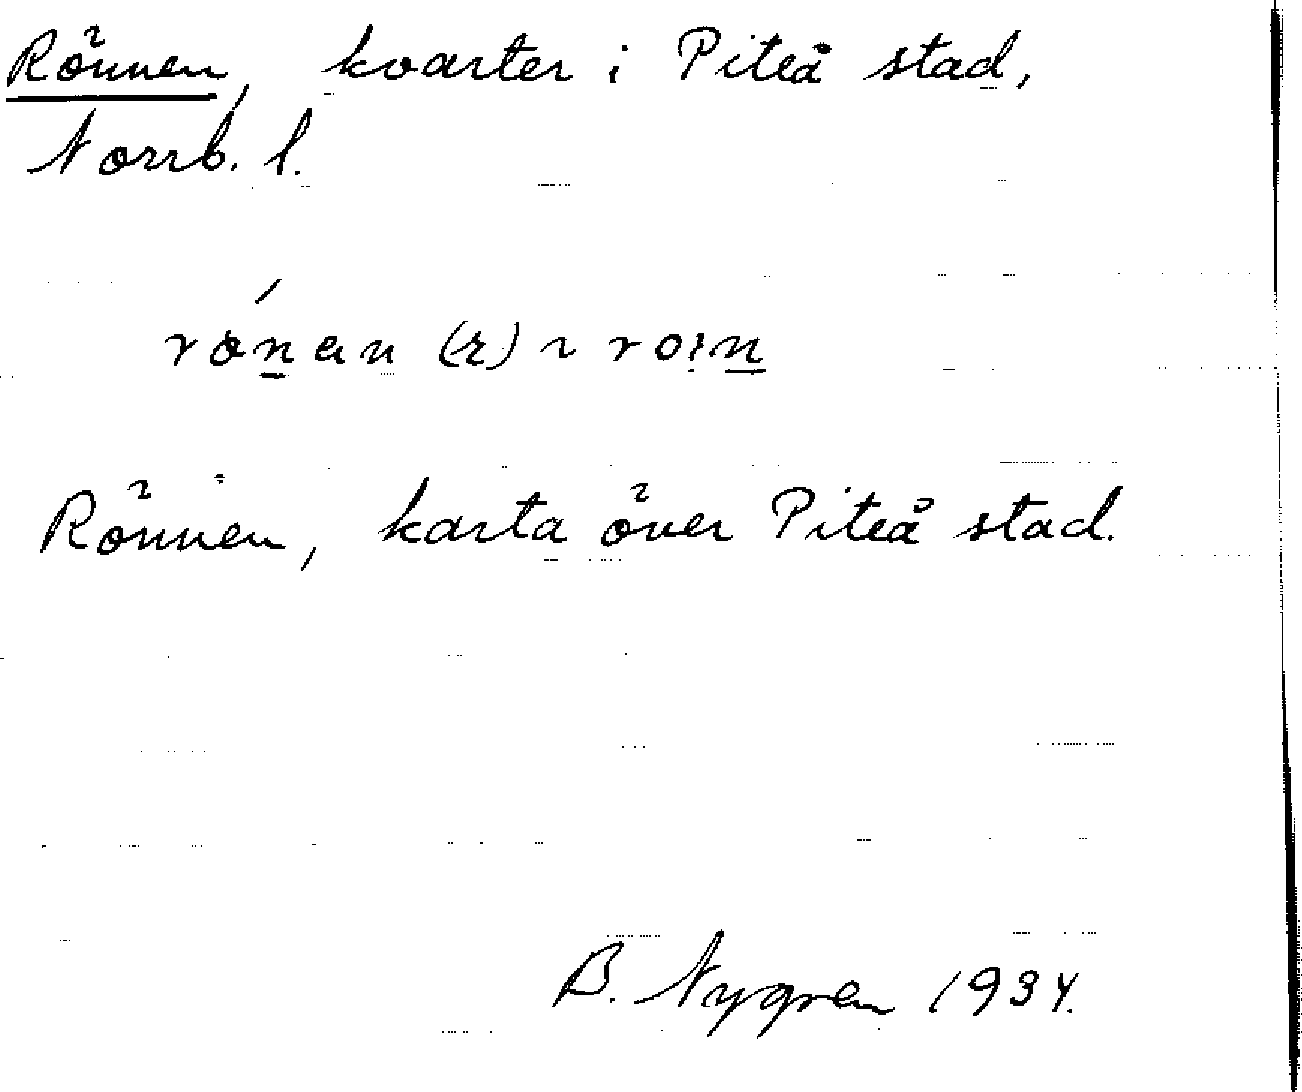 Rönnen, kvarter i Piteå stad,
Norrb. l.
Rönnen, karta över Piteå stad.
B. Nygren 1934.